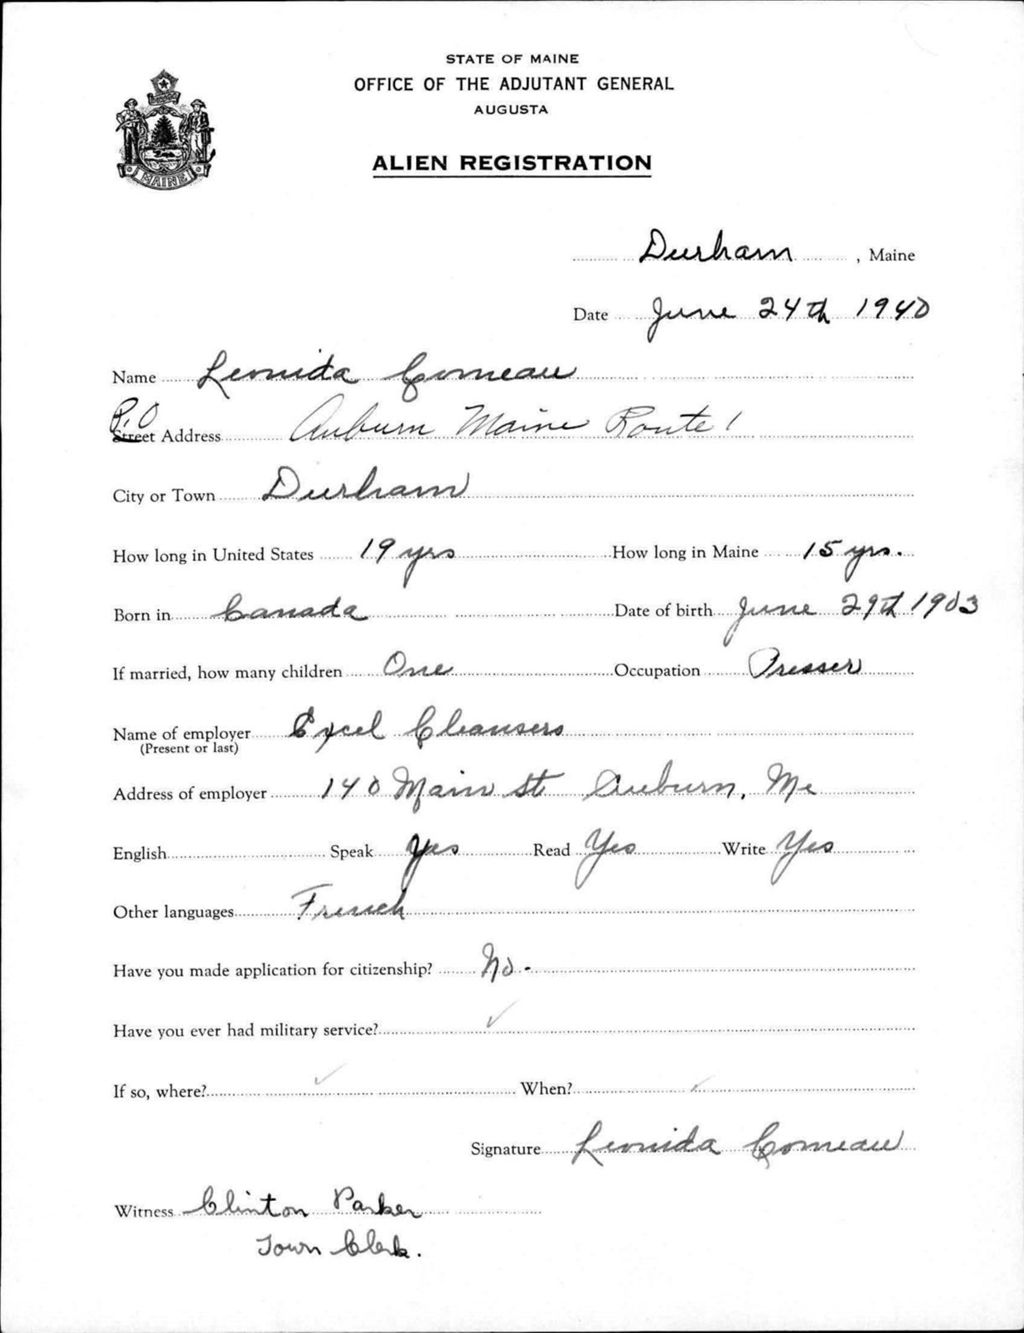 STATE OF MAINE
OFFICE OF THE ADJUTANT GENERAL
AUGUSTA
ALIEN REGISTRATION
MAINE
Durham, Maine
Date June 24th 1940
Name Leonida Comeau
P.O
Street Address Auburn Maine Route 1
City or Town Durham
How long in United States 19 yrs How long in Maine 15 yrs.
Born in Canada Date of birth June 29th 1903
If married, how many children One Occupation Presser
Name of employer Excel Cleansers
(Present or last)
Address of employer 140 Main St Auburn, Me
English Speak Yes Read Yes Write Yes
Other languages French
Have you made application for citizenship? No -
Have you ever had military service? ✓
If so, where? ✓ When? ✓
Signature Leonida Comeau
Witness Clinton Parker
Town Clerk.